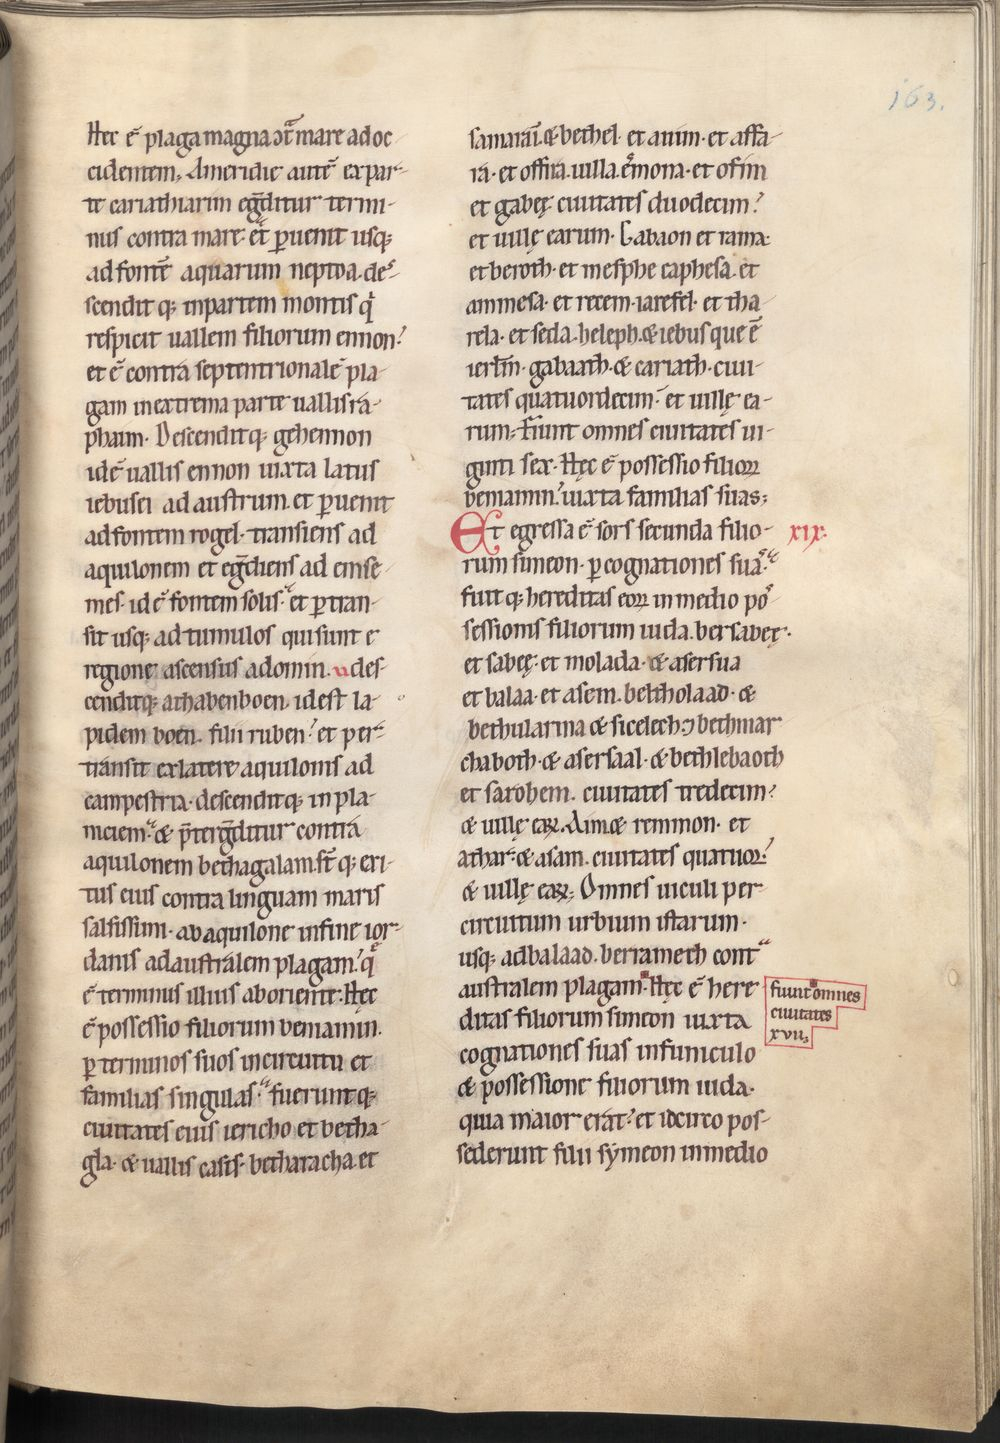 163.
Hec ē plaga magna ↄt̄ mare ad oc-
cidentem; A meridie autē ex par-
te cariathiarim eg̃ditur termi-
nus contra mare· et ꝑuenit usq;
ad fontē aquarum neptoa. de-
scendit q; in partem montis q̇
respicit uallem filiorum ennon?
et ē contra septentrionalē pla-
gam in extrema parte uallis ra-
phaim· Descenditq; gehennon
idē uallis ennon iuxta latus
iebusei ad austrum. et ꝑuenit
ad fontem rogel· transiens ad
aquilonem et eg̃diens ad emse-
mes· id ē fontem solis· et ꝑtran-
sit usq; ad tumulos qui sunt e
regione ascensus adomin. u des-
cenditq; athabenboen. id est la-
pidem boen. filii ruben? et per-
transit ex latere aquilonis ad
campestria· descenditq; in pla-
niciem· & p̃terg̃ditur contra
aquilonem bethagalam. st̄ q; exi-
tus eius contra linguam maris
salsissimi· ab aquilone in fine ior-
danis ad australem plagam? q̄
ē terminus illius ab oriente: Hęc
ē possessio filiorum beniamin.
ꝑ terminos suos in circuitu et
familias singulas· fuerunt q;
ciuitates eius iericho et betha-
gla· & uallis casis· betharacha et
samaraī. & bethel· et auim· et affa-
ra· et offira. uilla ēmona· et ofim
et gabeę ciuitates duodecim?
et uillę earum· Gabaon et rama·
et beroth· et mesphe caphesa· et
ammesa· et recem· iarefel· et tha-
rela· et seda. heleph. & iebus que ē
ierl̄m· gabaath· & cariath· ciui-
tates quatuordecim· et uillę ea-
rum; Fiunt omnes ciuitates ui-
ginti sex· Hęc ē possessio filioꝝ
beniamin? iuxta familias suas;
Et egressa ē sors secunda filio-
xix·
rum simeon· ꝑ cognationes suas·
fuit q; hereditas eoꝝ in medio pos-
sessionis filiorum iuda. bersabeę·
et sabeę· et molada· & asersua
et balaa· et asem. beltholaad· &
bethularma & sicelech· ↄ bethmar
chaboth· & asersaal· & bethlebaoth
et sarohem. ciuitates tredecim?
& uillę eaꝝ. Aim & remmon· et
athar· & asam. ciuitates quatuor?
& uillę eaꝝ; Omnes uiculi per
circuitum urbium istarum·
usq; ad balaad. berrameth cont
australem plagam· Hęc ē here-
ditas filiorum simeon iuxta
cognationes suas in funiculo
& possessione filiorum iuda·
quia maior erat? et idcirco pos-
sederunt filii symeon in medio
fiunt omnes
ciuitates
xvii;